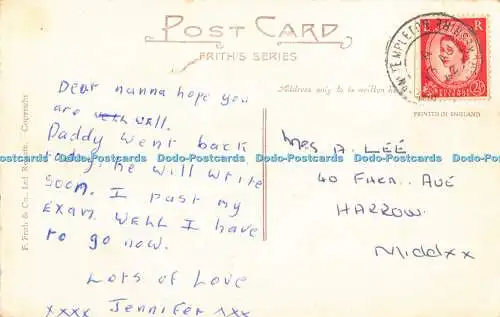 POST CARD
FRITH'S SERIES
Dear nanna hope you
are well.
Daddy went back
today, he will write
soon. I past my
Exam. WELL I have
to go now.
Lots of Love
xxxx Jennifer xxx
Address only to be written here
PRINTED IN ENGLAND
Mrs A. LEE
40 AVE
HARROW
Middxx
F. Frith & Co., Ltd Reigate. Copyright
TEMPLETON
Dodo-Postcards Dodo-Postcards Dodo-Postcards Dodo-Postcards Dodo-Postcards